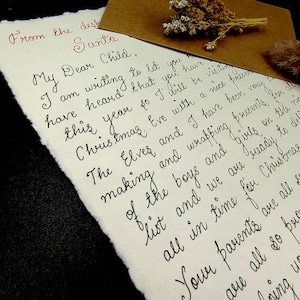 From the desk
Santa
My Dear Child,
I am writing to let you
have heard that you have
this year so I will be visiting
Christmas Eve with a nice
The Elves and I have been very
making and wrapping presents for
of the boys and girls on
list and we are ready to
all in time for Christmas
Your parents are all so
are all so